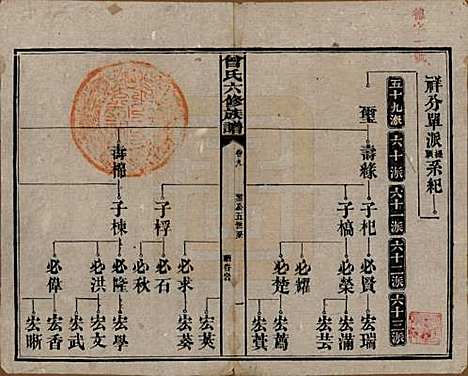 祥芬單派
系紀
五十九派
六十派
六十一派
六十二派
六十三派
聖
壽緣
子杞
必賢
宏瑞
子槁
必榮
宏滿
宏芸
必耀
必楚
宏萬
宏蕢
曾氏六修族譜
卷九
壽櫓
子桴
必求
宏葵
必石
必秋
子棟
必隆
宏學
必洪
宏文
宏武
必偉
宏香
宏晰